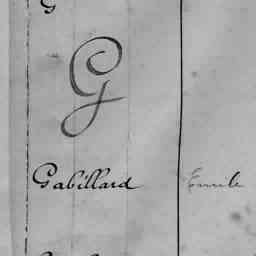 G
G
Gabillard Emile